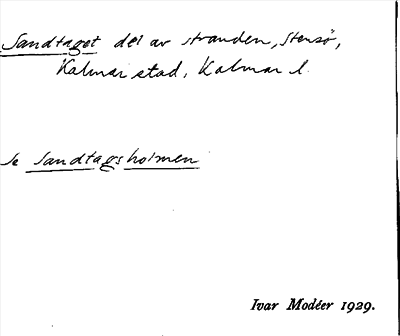 Sandtaget del av stranden, Stensö,
Kalmar stad, Kalmar l.
Se Sandtagsholmen
Ivar Modéer 1929.